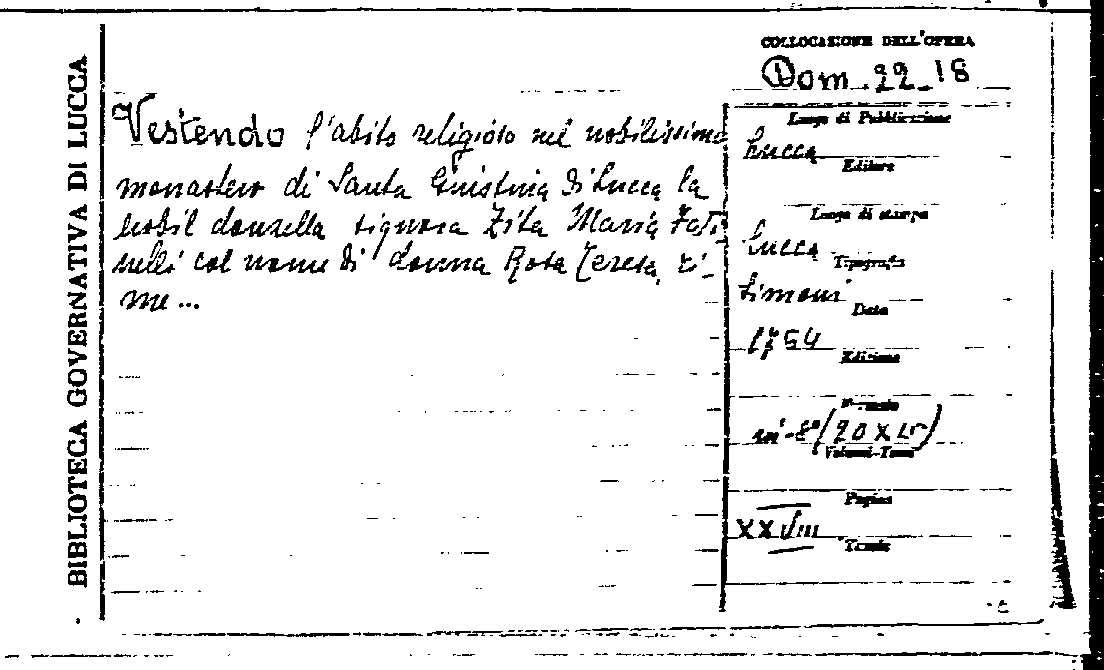 BIBLIOTECA GOVERNATIVA DI LUCCA
COLLOCAZIONE DELL'OPERA
Dom. 22_18
Vestendo l'abito religioso nel nobilissimo
monastero di Santa Giustina di Lucca la
nobil donzella signora Zita Maria Fati-
nelli col nome di donna Rosa Teresa, ri-
me...
Luogo di Pubblicazione
Lucca
Editore
Luogo di stampa
Lucca
Tipografia
Simoni
Data
1754
Edizione
Formato
in-8º (20 x 15)
Volumi-Tomi
Pagine
XXVIII
Tavole